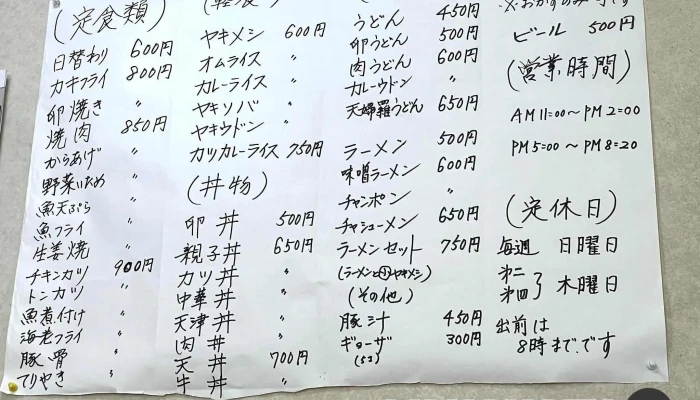 (定食類)
日替わり 600円
カキフライ 800円
卵焼き 〃
焼肉 850円
からあげ 〃
野菜いため 〃
魚天ぷら 〃
魚フライ 〃
生姜焼 〃
チキンカツ 900円
トンカツ 〃
魚煮付け 〃
海老フライ 〃
豚骨 〃
てりやき 〃
ヤキメシ 600円
オムライス 〃
カレーライス 〃
ヤキソバ 〃
ヤキウドン 〃
カツカレーライス 750円
(丼物)
卵丼 500円
親子丼 650円
カツ丼 〃
中華丼 〃
天津丼 〃
肉丼 〃
天丼 700円
牛丼 〃
うどん 450円
卵うどん 500円
肉うどん 600円
カレーウドン 〃
天婦羅うどん 650円
ラーメン 500円
味噌ラーメン 600円
チャンポン 〃
チャシューメン 650円
ラーメンセット 750円
(ラーメンと小ヤキメシ)
(その他)
豚汁 450円
ギョーザ 300円
(5コ)
ビール 500円
(営業時間)
AM11:00〜PM2:00
PM5:00〜PM8:20
(定休日)
毎週 日曜日
第二
第四 木曜日
出前は
8時まで.です